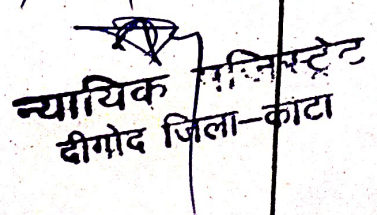 न्यायिक मजिस्ट्रेट
दीगोद जिला-कोटा